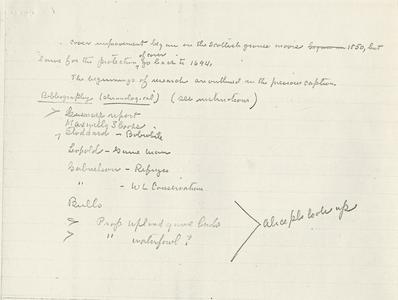 Cover improvement began on the Scottish grouse moors 1850, but
laws for the protection of cover go back to 1694.
The beginnings of research are outlined in the previous caption.
Bibliography (chronological) (see instructions)
report
Maxwell, S
Stoddard - Bobwhite
Leopold - Game Man
Gabrielson - Refuges
" - WL Conservation
Bulls
Prop upland game birds
" waterfowl?
Alice pls look up